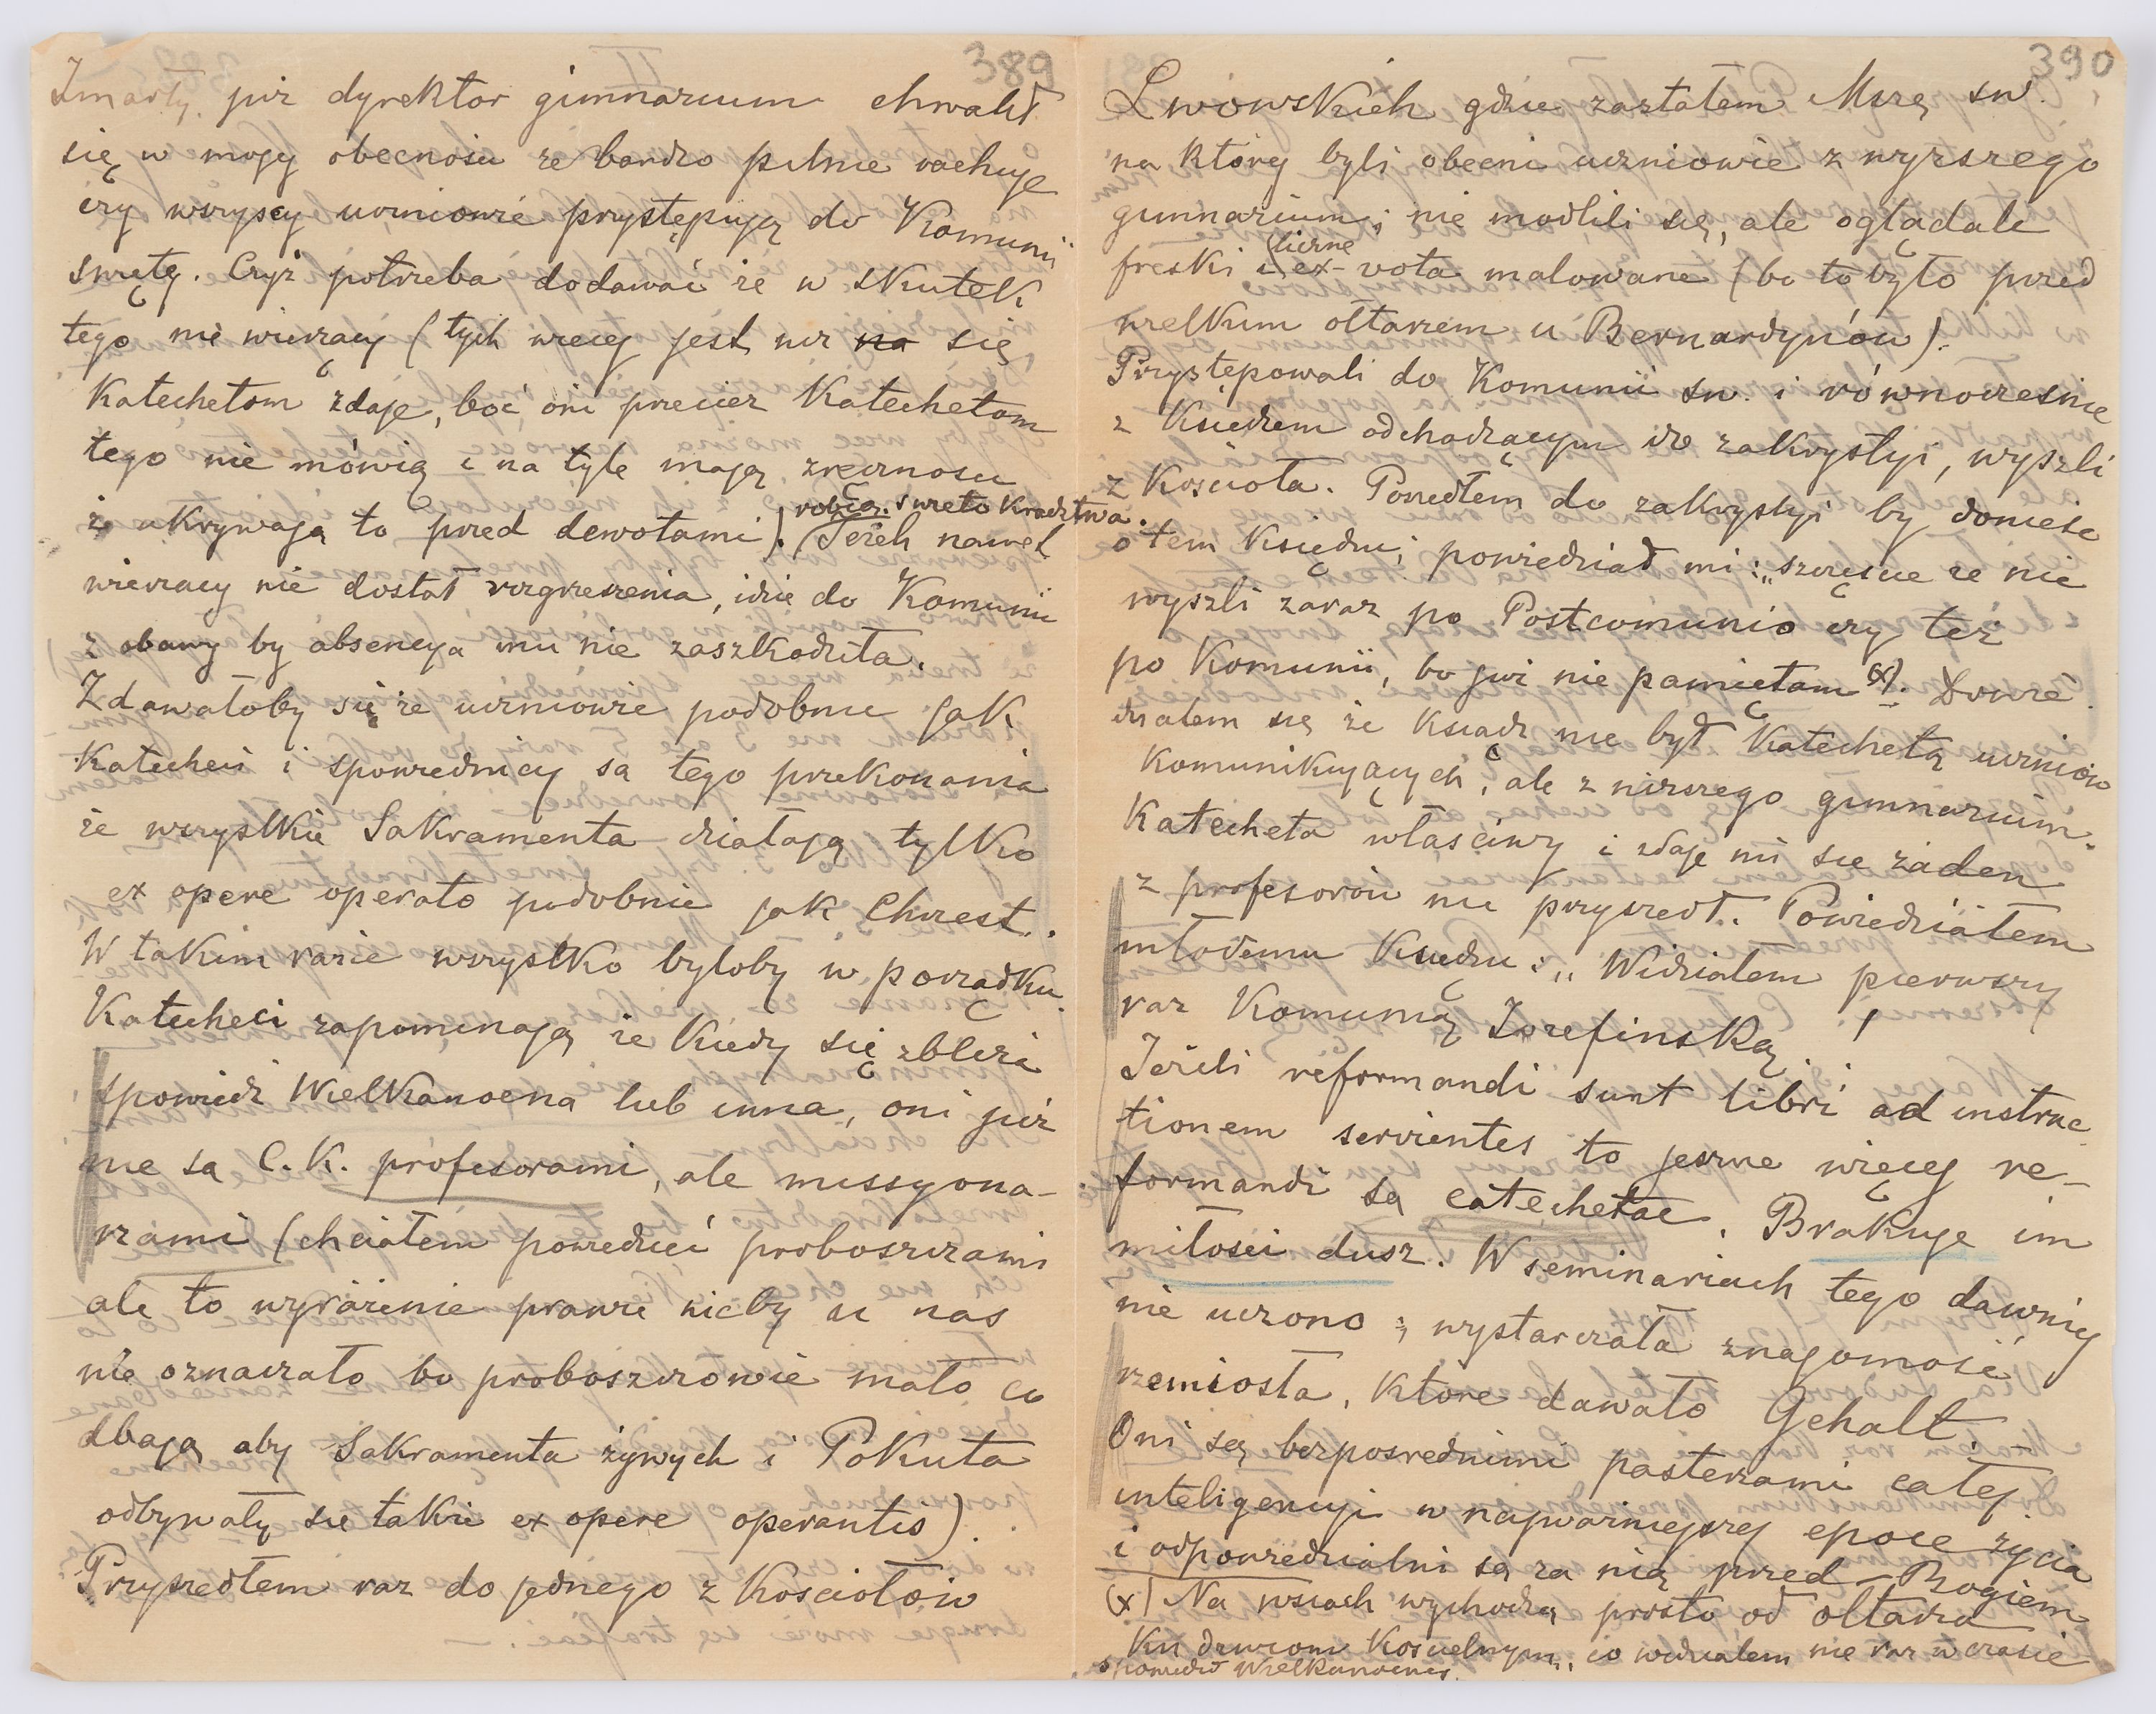 389
Zmarły już dyrektor gimnazium chwalił
się w mojej obecności że bardzo pilnie rachuje
czy wszyscy uczniowie przystępują do Komunii
świętej. Czyż potrzeba dodawać że w skutek
tego nie wierzący (tych więcej jest niż na się
Katechetom zdaje, boć oni przecież Katechetom
tego nie mówią i na tyle mają zręczności
że ukrywają to przed dewotami). robią świętokradztwa.
Jeżeli nawet
wierzący nie dostał rozgrzeszenia, idzie do Komunii
z obawy by absencya mu nie zaszkodziła.
Zdawałoby się że uczniowie podobnie jak
Katecheci i spowiednicy są tego przekonania
że wszystkie Sakramenta działają tylko
ex opere operato podobnie jak Chrzest.
W takim razie wszystko byłoby w porządku.
Katecheci zapominają że kiedy się zbliża
spowiedź Wielkanocna lub inna, oni już
nie są C.K. profesorami, ale missyona-
rzami (chciałem powiedzieć proboszczami
ale to wyrażenie prawie nicby u nas
nie oznaczało bo proboszczowie mało co
dbają aby Sakramenta żywych i Pokuta
odbywały się także ex opere operantis).
Przyszedłem raz do jednego z Kościołów
390
Lwowskich gdzie zastałem Mszę św.
na której byli obecni uczniowie z wyższego
gimnazium; nie modlili się, ale oglądali
freski i liczne ex-vota malowane (bo to było przed
wielkim ołtarzem u Bernardynów).
Przystępowali do Komunii św. i równocześnie
z Księdzem odchodzącym do zakrystyi, wyszli
z Kościoła. Poszedłem do zakrystyi by donieść
o tem Księdzu; powiedział mi: „szczęście że nie
wyszli zaraz po Postcomunio czy też
po Komunii, bo już nie pamiętam (x). Dowie-
działem się że Ksiądz nie był Katechetą uczniów
Komunikujących, ale z niższego gimnazium.
Katecheta właściwy i zdaje mi się żaden
z profesorów nie przyszedł. Powiedziałem
młodemu Księdzu: „Widziałem pierwszy
raz Komunią Józefińską!
Jeżeli reformandi sunt libri ad instruc-
tionem servientes to jeszcze więcej re-
formandi są catechetae. Brakuje im
miłości dusz. W seminariach tego dawniej
nie uczono; wystarczała znajomość
rzemiosła, które dawało Gehalt.—
Oni są bezpośrednimi pasterzami całej
inteligencyi w najważniejszej epoce życia
i odpowiedzialni są za nią przed Bogiem.
(x) Na wsiach wychodzą prosto od ołtarza
ku drzwiom Kościelnym, co widziałem nie raz w czasie
spowiedzi Wielkanocnej.